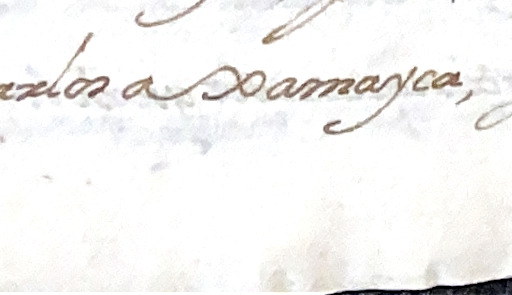 arlos a Xamayca,